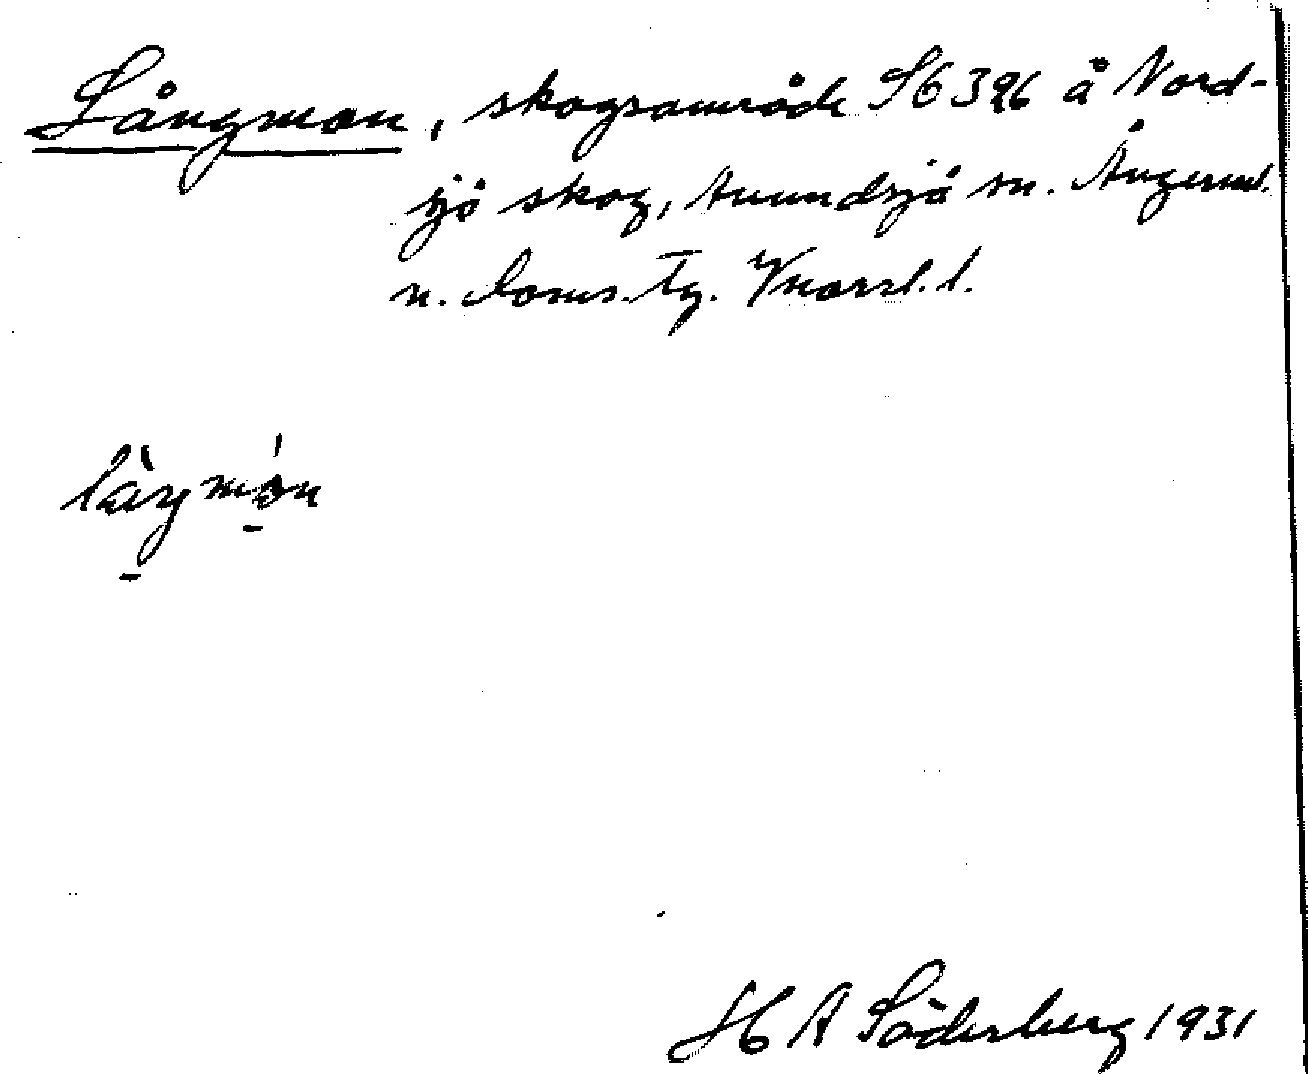 Långmon, skogsområde Sb 396 å Nord-
sjö skog, Anundsjö sn. Ångerml.
n. doms. tg. Vnorrl. l.
làŋmón
H A Söderberg 1931